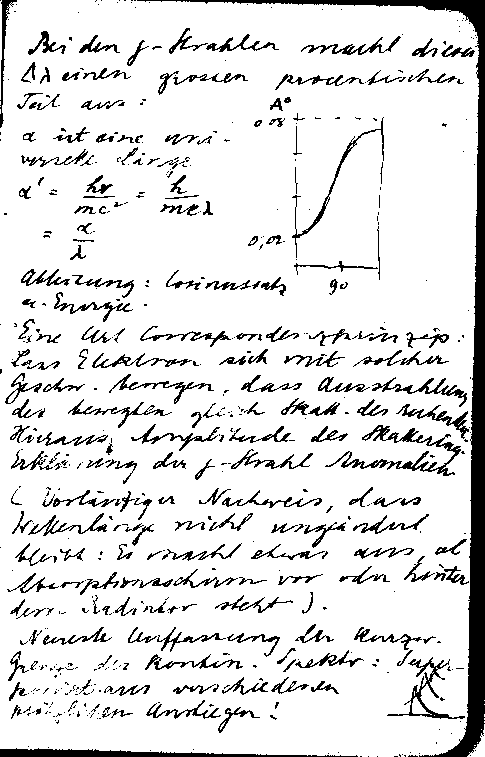 Bei den γ-Strahlen macht dieses
Δλ einen grossen procentischen
Teil aus:
α ist eine uni-
verselle Länge
α' = hν/mc² = h/mcλ
= α/λ
A°
0,08
0,02
90
Ableitung: Cosinussatz
u. Energie.
Eine Art Correspondenzprinzip:
Lass Elektron sich mit solcher
Geschw. bewegen, dass Ausstrahlung
des bewegten gleich Skatt. des ruhenden
Hieraus Amplitude des Skattering
Erklärung der γ-Strahl Anomalien
(Vorläufiger Nachweis, dass
Wellenlänge nicht ungeändert
bleibt: Es macht etwas aus, ob
Absorptionsschirm vor oder hinter
dem Radiator steht).
Neueste Auffassung der kurzw.
Grenze des Kontin. Spektr: Super-
aus verschiedenen
möglichen Anstiegen!